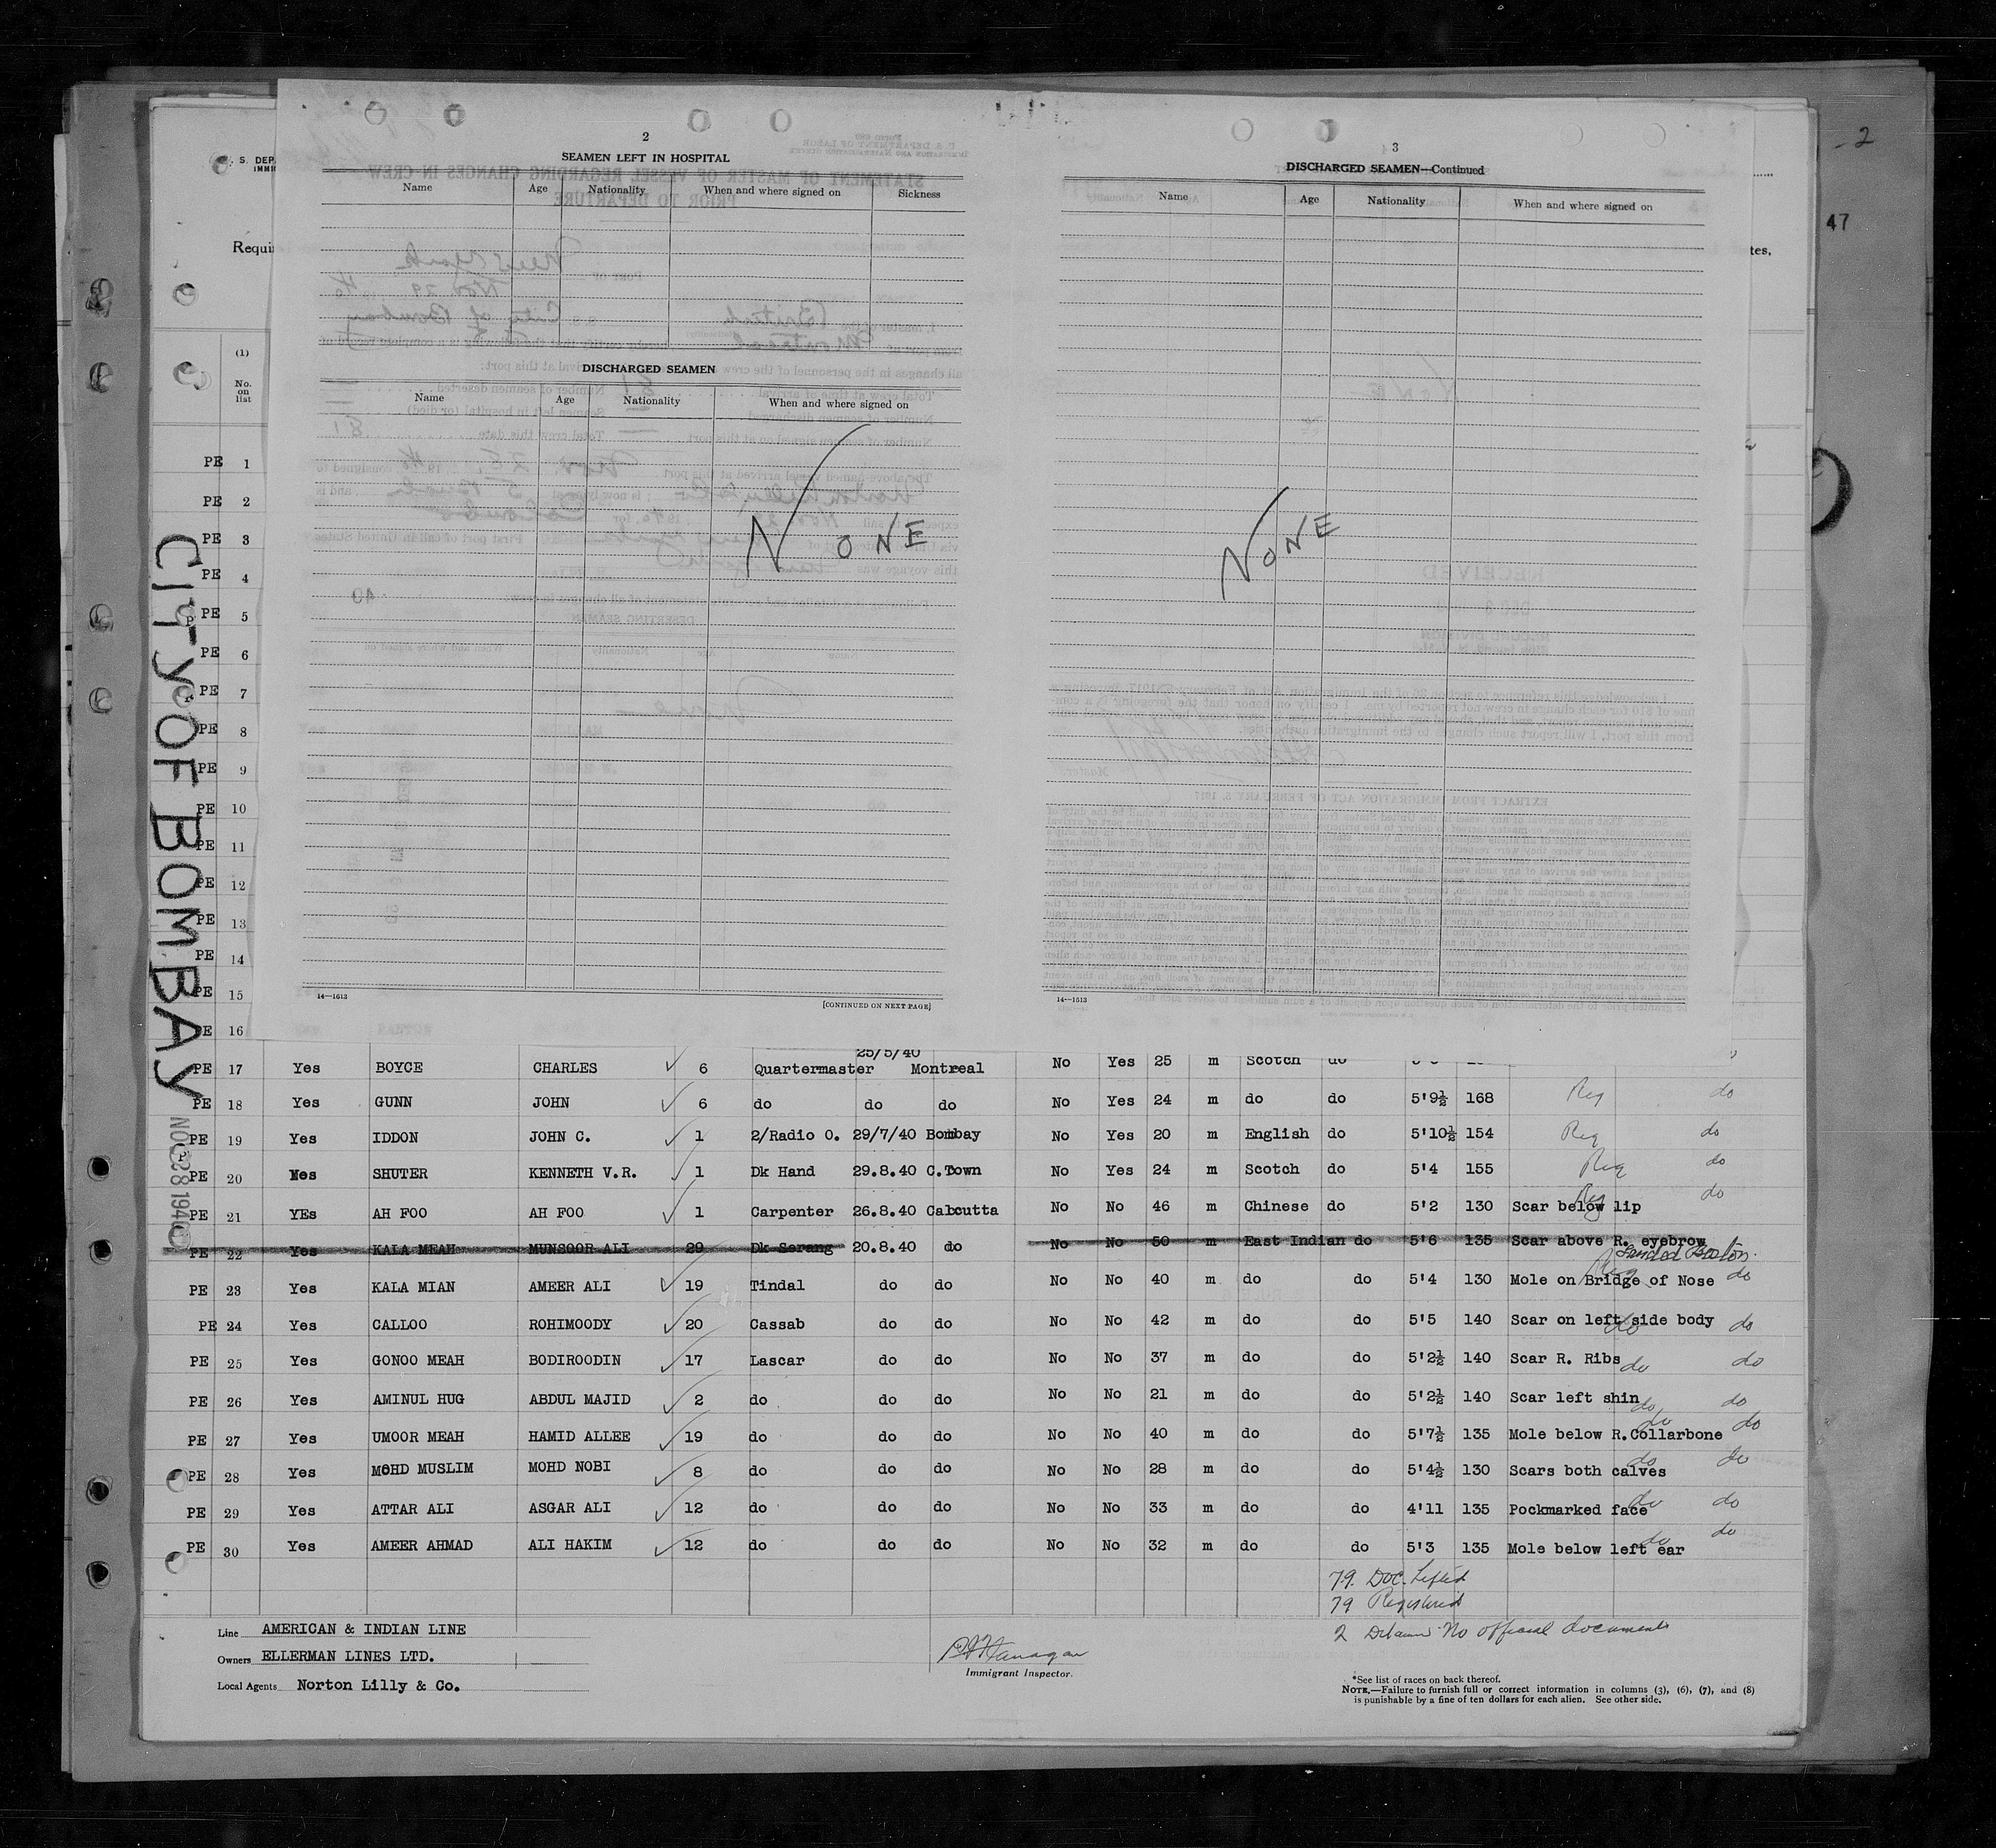 2
47
U. S. DEP
IMMIG
Requi
tes,
(1)
No.
on
list
2
SEAMEN LEFT IN HOSPITAL
Name Age Nationality When and where signed on Sickness
DISCHARGED SEAMEN
Name Age Nationality When and where signed on
NONE
14—1613 [CONTINUED ON NEXT PAGE]
3
DISCHARGED SEAMEN—Continued
Name Age Nationality When and where signed on
NONE
14—1613
CITY OF BOMBAY
NOV 28 1940
PE 1
PE 2
PE 3
PE 4
PE 5
PE 6
PE 7
PE 8
PE 9
PE 10
PE 11
PE 12
PE 13
PE 14
PE 15
PE 16
25/5/40
PE 17 Yes BOYCE CHARLES 6 Quartermaster Montreal No Yes 25 m Scotch do
PE 18 Yes GUNN JOHN 6 do do do No Yes 24 m do do 5'9½ 168 Reg do
PE 19 Yes IDDON JOHN C. 1 2/Radio O. 29/7/40 Bombay No Yes 20 m English do 5'10½ 154 Reg do
PE 20 Yes SHUTER KENNETH V.R. 1 Dk Hand 29.8.40 C.Town No Yes 24 m Scotch do 5'4 155 Reg do
PE 21 YEs AH FOO AH FOO 1 Carpenter 26.8.40 Calcutta No No 46 m Chinese do 5'2 130 Scar below lip Reg do
PE 22 Yes KALA MEAH MUNSOOR ALI 29 Dk Serang 20.8.40 do No No 50 m East Indian do 5'6 135 Scar above R. eyebrow
Landed Boston.
PE 23 Yes KALA MIAN AMEER ALI 19 Tindal do do No No 40 m do do 5'4 130 Mole on Bridge of Nose Reg do
PE 24 Yes CALLOO ROHIMOODY 20 Cassab do do No No 42 m do do 5'5 140 Scar on left side body do do
PE 25 Yes GONOO MEAH BODIROODIN 17 Lascar do do No No 37 m do do 5'2½ 140 Scar R. Ribs do do
PE 26 Yes AMINUL HUG ABDUL MAJID 2 do do do No No 21 m do do 5'2½ 140 Scar left shin do do
PE 27 Yes UMOOR MEAH HAMID ALLEE 19 do do do No No 40 m do do 5'7½ 135 Mole below R.Collarbone do do
PE 28 Yes MOHD MUSLIM MOHD NOBI 8 do do do No No 28 m do do 5'4½ 130 Scars both calves do do
PE 29 Yes ATTAR ALI ASGAR ALI 12 do do do No No 33 m do do 4'11 135 Pockmarked face do do
PE 30 Yes AMEER AHMAD ALI HAKIM 12 do do do No No 32 m do do 5'3 135 Mole below left ear do do
79 Doc. Lifted
79 Registered
2 Detained No official documents
Line AMERICAN & INDIAN LINE
Owners ELLERMAN LINES LTD.
Local Agents Norton Lilly & Co.
Immigrant Inspector.
*See list of races on back thereof.
NOTE.—Failure to furnish full or correct information in columns (3), (6), (7), and (8)
is punishable by a fine of ten dollars for each alien. See other side.